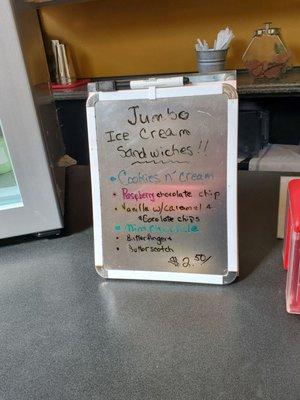 Jumbo
Ice Cream
Sandwiches!!
• Cookies n' Cream
• Raspberry chocolate chip
• Vanilla w/caramel &
chocolate chips
• Mint
• Butterfingers
• Butterscotch
$2.50/